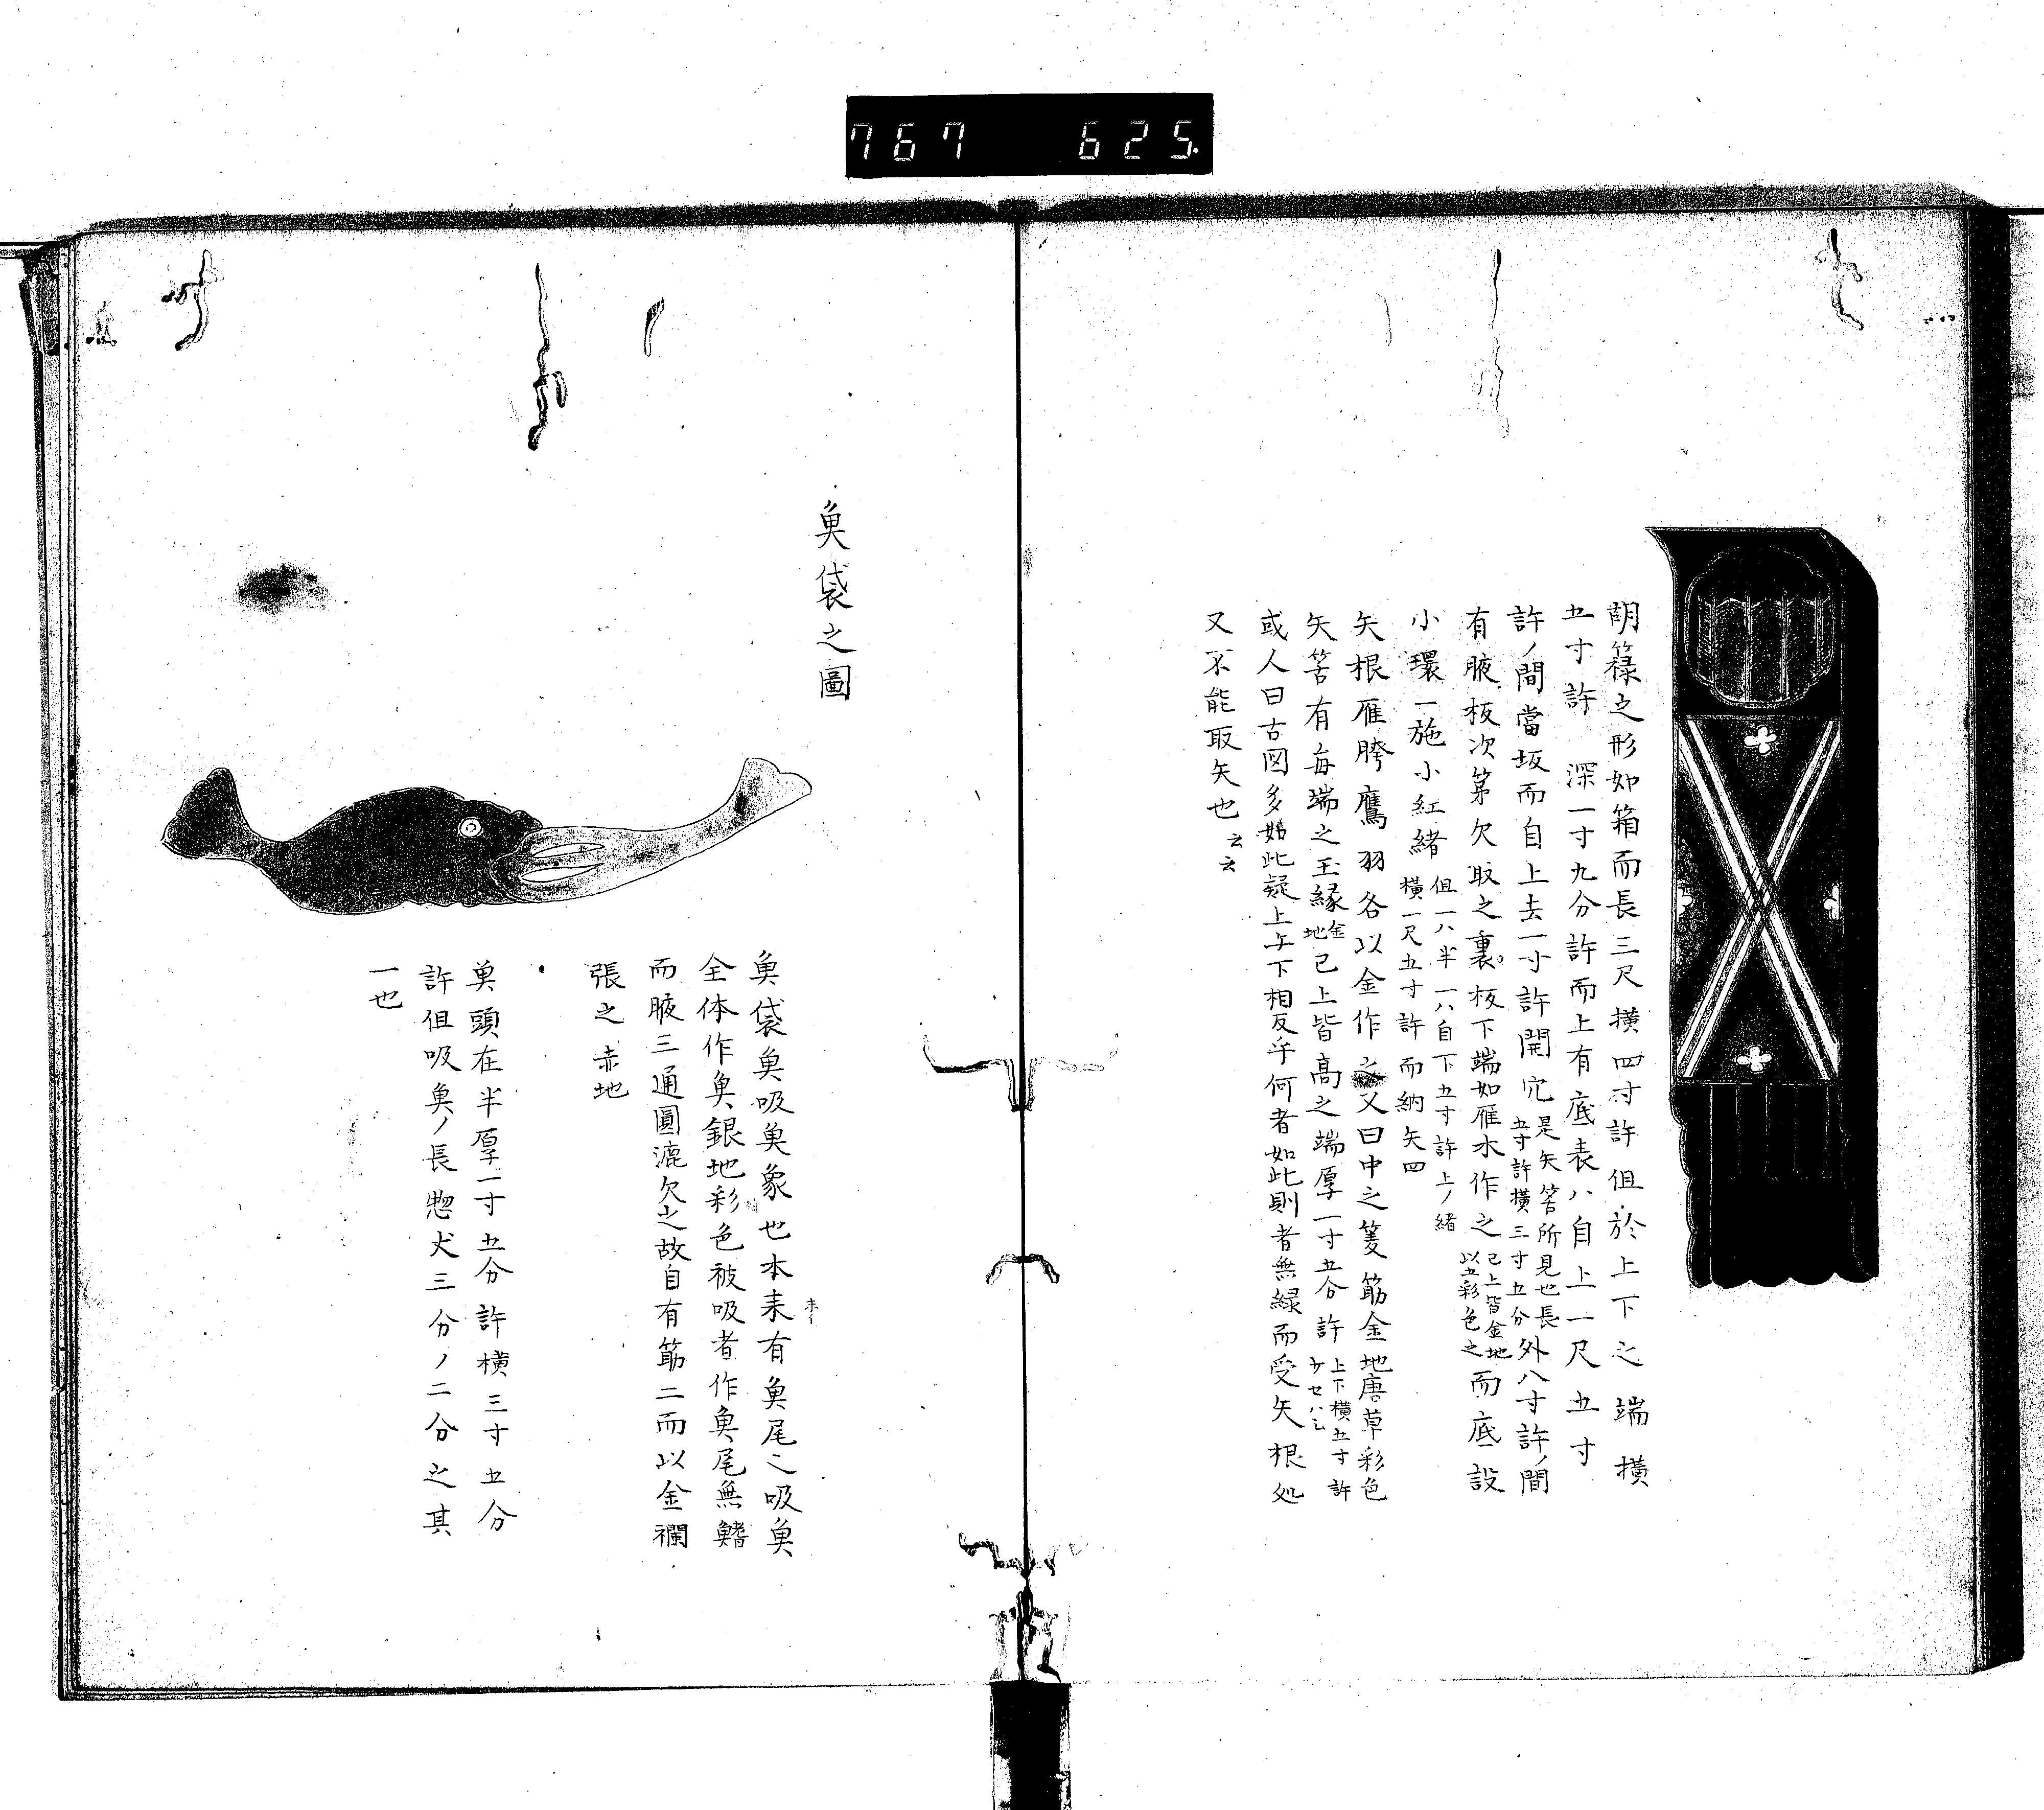 767 625.
胡籙之形如箱而長三尺横四寸許但於上下之端横
五寸許 深一寸九分許而上有底表ハ自上一尺五寸
許ノ間當坂而自上去一寸許開穴是矢筈所見也長五寸許横三寸五分外八寸許ノ間
有腋板次第欠取之裏板下端如雁木作之已上皆金地以五彩色之而底設
小環一施小紅緒但一ハ半一ハ自下五寸許上ノ緒横一尺五寸許而納矢四
矢根雁胯鷹羽各以金作之又曰中之篗筋金地唐草彩色
矢筈有毎端之玉縁金地已上皆高之端厚一寸五分許上下横五寸許
或人曰古図多如此疑上与下相反乎何者如此則者無緑而受矢根処
又不能取矢也云云
魚袋之圖
魚袋魚吸魚象也本来有魚尾之吸魚
全体作魚銀地彩色被吸者作魚尾無鰭
而腋三通圓漉欠之故自有筋二而以金襴
張之 赤地
魚頭在半厚一寸五分許横三寸五分
許但吸魚ノ長惣丈三分ノ二分之其
一也